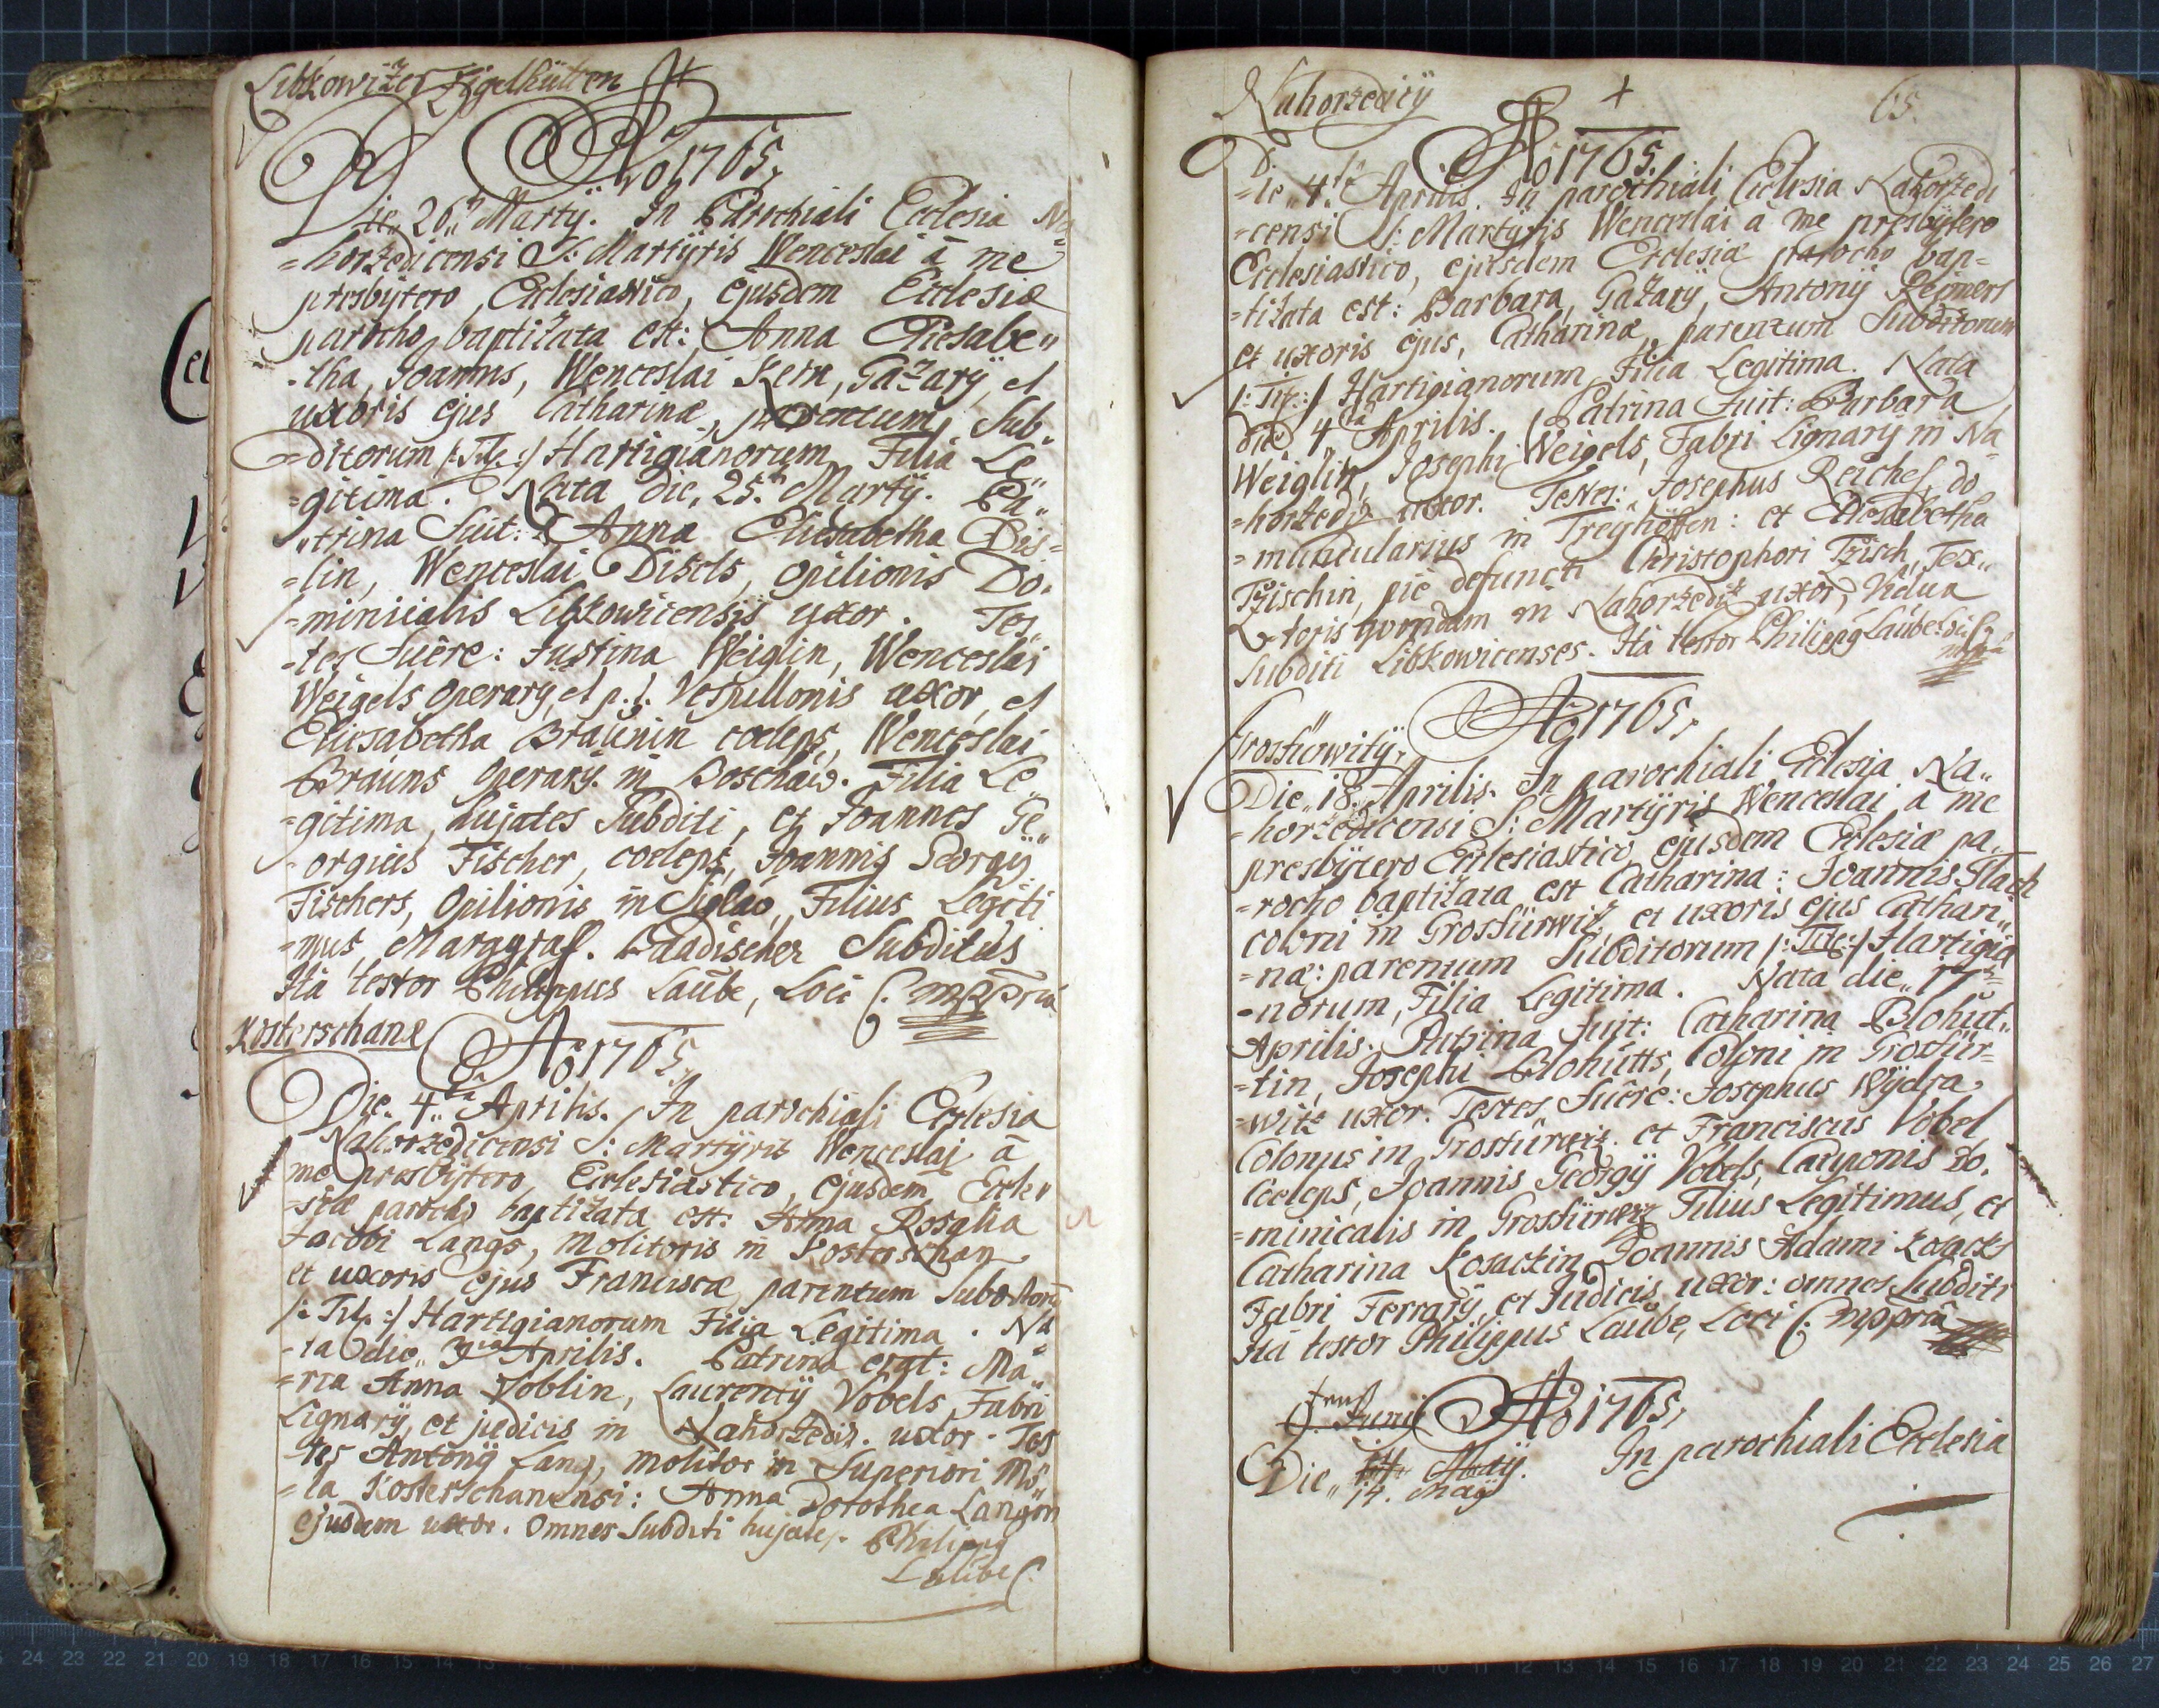 Libkowitzer Zigelhütten
Ao 1765,
Die, 26, Martÿ. In Parochiali Ecclesia Na
=horžedicensi S: Martÿris Wenceslai à me
presbÿtero Ecclesiastico, ejusdem Ecclesiæ
parocho, baptizata est: Anna Eliesabe"
-tha, Joannis, Wenceslai Kern, Gažarÿ, et
uxoris ejus Catharinæ, parentum, Sub"
-ditorum /: Tit: :/ Hartigianorum Filia Le"
=gitima. Nata die, 25. Martÿ. Pa"
"trina Fuit: Anna Eliesabetha Dis=
=lin, Wenceslai Disels, opilionis Do"
=minicialis Libkowicensis uxor. Tes
-tes Fuêre: Justina Weiglin, Wenceslai
Weigels operarÿ, et p. t. Vespillonis uxor, et
Eliesabetha Braunin coeleps, Wenceslai
Brauns operarÿ. in Doschau. Filia Le"
=gitima, hujates Subditi, et Joannes Ge"
-orgius Fischer, coeleps, Joannis Georgÿ
Fischers, Opilionis in Siglau, Filius Legiti
=mus, Marggraf. Baadischer Subditus
Ità testor Philippus Laube, Loci C. mppria
Kosterschane
Ao 1765,
Die. 4ta Aprilis. In parochiali Ecclesia
Nahoržedicensi S: Martÿris Wenceslai à
me presbÿtero, Ecclesiastico, ejusdem Eccle"
=siæ parocho baptizata est: Anna Rosalia
Jacobi Langs, molitoris in Kosterschan
et uxoris ejus Franciscæ, parentum Subditorū
/: Tit: :/ Hartigianorum Filia Legitima. Na
-ta die, 3tia Aprilis. Patrina erat: Ma"
=ria Anna Voblin, Laurentÿ Vobels, Fabri
Lignarÿ, et judicis in Nahoržedit. uxor. Tes
-tes Antonÿ Lang, molitor in Superiori Mo"
=la Kosterschanensi: Anna Dorothea Langin
ejusdem uxor. omnes Subditi hujates. Philippg
Laube C.
Nahoržediÿ
65.
Ao 1765.
Die 4ta Aprilis. In parochiali Ecclesia Nahoržedi
=censi S: Martÿris Wenceslai à me presbÿtero
Ecclesiastico, ejusdem Ecclesiæ parocho bap=
=tizata est: Barbara, Gažarÿ, Antonÿ Reimers
et uxoris ejus, Catharinæ, parentum Subditorum
/: Tit: :/ Hartigianorum Filia Legitima. Nata
die 4ta Aprilis. Patrina Fuit: Barbara
Weiglin, Josephi Weigels, Fabri Lignarÿ in Na
=horžediz uxor. Testes: Josephus Reichel, do
=muncularius in Treÿhöffen: et Eliesabetha
Tzischin, piè defuncti Christophori Tzisch, Tex"
-toris quondam in Nahoržedit uxor, Vidua
Subditi Libkowicenses. Ità testor Philippg Laube
mppria
Grostürwitÿ,
Ao 1765,
Die, 18. Aprilis. In parochiali Eclesia Na"
-horžedicensi S: Martÿris Wenceslai à me
presbÿtero Ecclesiastico ejusdem Ecclesiæ pa"
=rocho baptizata est Catharina: Joannis Flach
coloni in Grostürwiz, et uxoris ejus Cathari"
=næ: parentum Subditorum /: Tit: :/ Hartigia
=norum, Filia Legitima. Nata die, 17
Aprilis. Patrina Fuit: Catharina Blohut"
=tin, Josephi Blohutts, Coloni in Grostür=
-witz uxor. Testes Fuêre: Josephus Wÿdra
Colonus in Grostürwiz. et Franciscus Vobel
Coeleps, Joannis Georgÿ Vobels, Cauponis Do.
=minicalis in Grostürwiz Filius Legitimus, et
Catharina Kosackin Joannis Adami Kosacks
Fabri Ferrarÿ, et Judicis uxor: omnes Subditi
Ità testor Philippus Laube, Loci C. mppria
Junii
Ao 1765,
Die, 14. Maÿ. In parochiali Ecclesia
14. Maÿ